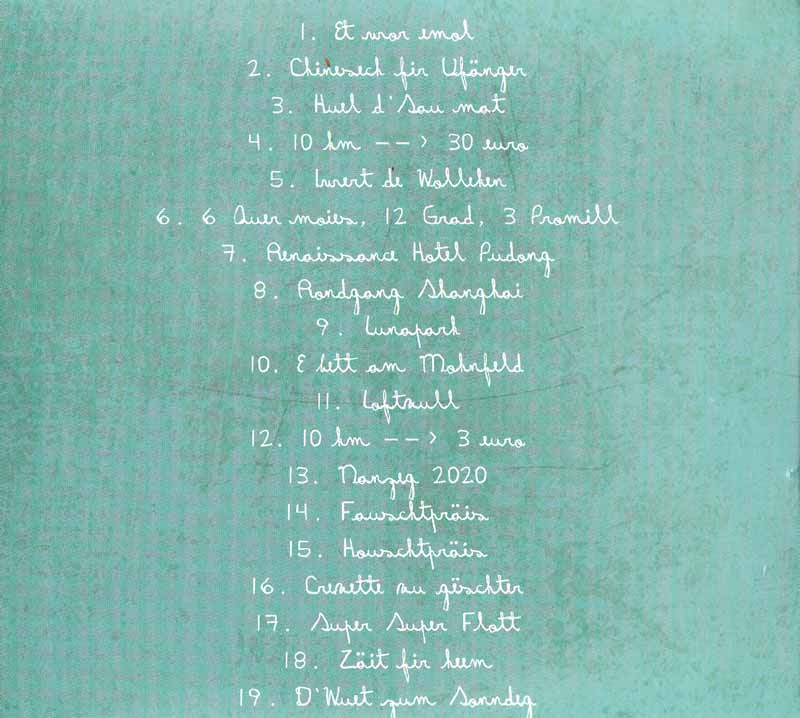 1. Et wor emol
2. Chinesech fir Ufänger
3. Huel d'Sau mat
4. 10 km --> 30 euro
5. Iwert de Wolleken
6. 6 Auer moies, 12 Grad, 3 Promill
7. Renaissance Hotel Pudong
8. Rondgang Shanghai
9. Lunapark
10. E bett am Mohnfeld
11.
12. 10 km --> 3 euro
13. Nanzeg 2020
14. Fauschtpräis
15. Houschtpräis
16. Crevette vu gëschter
17. Super Super Flott
18. Zäit fir heem
19. D'Wuet zum Sonndeg